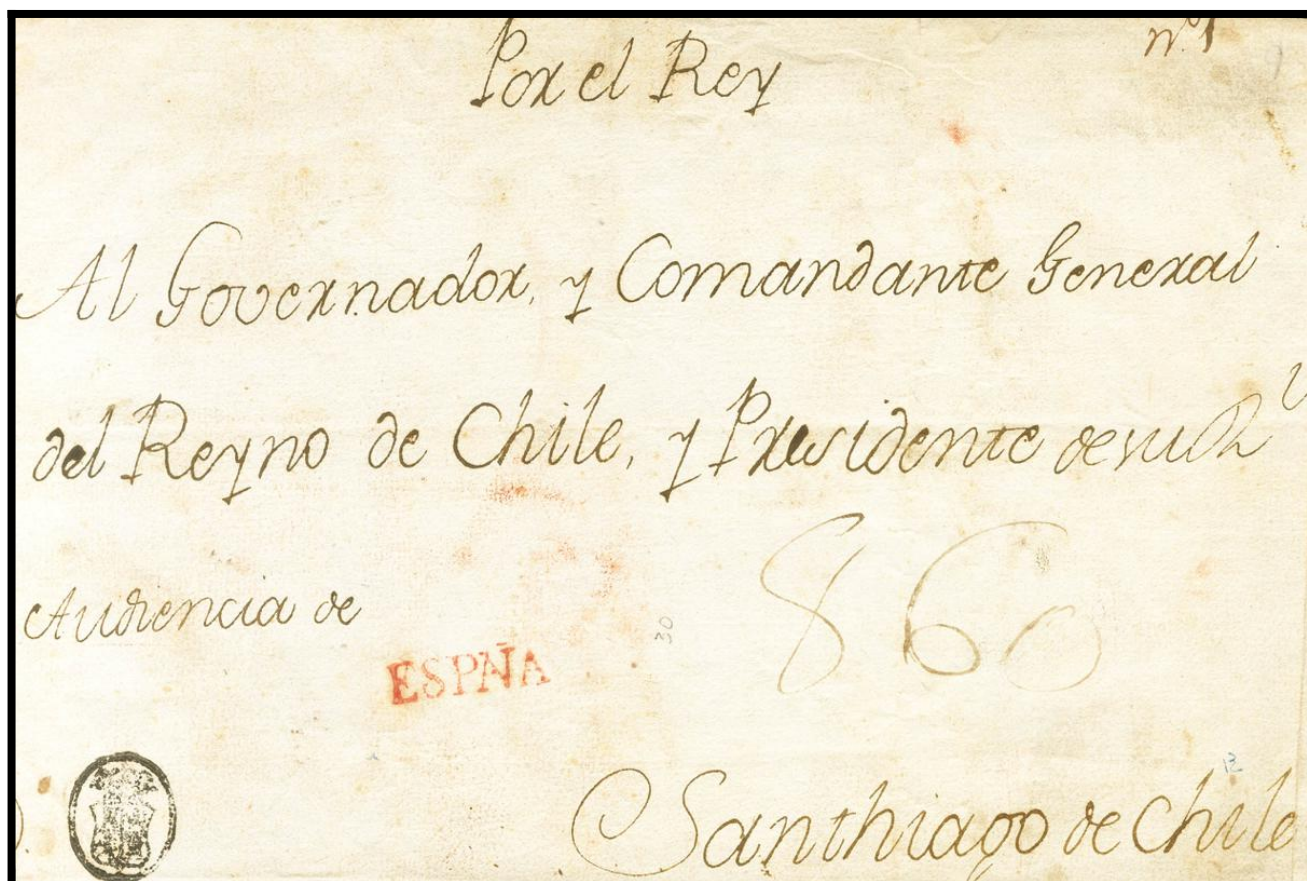 nº 1
Por el Rey
Al Governador, y Comandante General
del Reyno de Chile, y Presidente de su Rl
Audiencia de
30
860
ESPAÑA
12
Santhiago de Chile